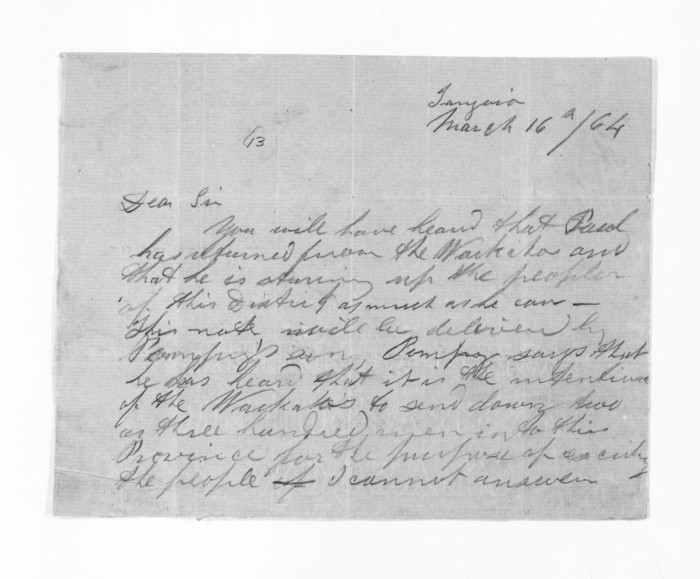 Tangoio
March 16th/64
13
Dear Sir
You will have heard that Paul
has returned from the Waikatos and
that he is stirring up the people
of this District as much as he can —
This note will be delivered by
Pomprey's son, Pomprey says that
he has heard that it is the intention
of the Waikatos to send down two
or three hundred men in to this
Province for the purpose of exciting
the people I cannot answer